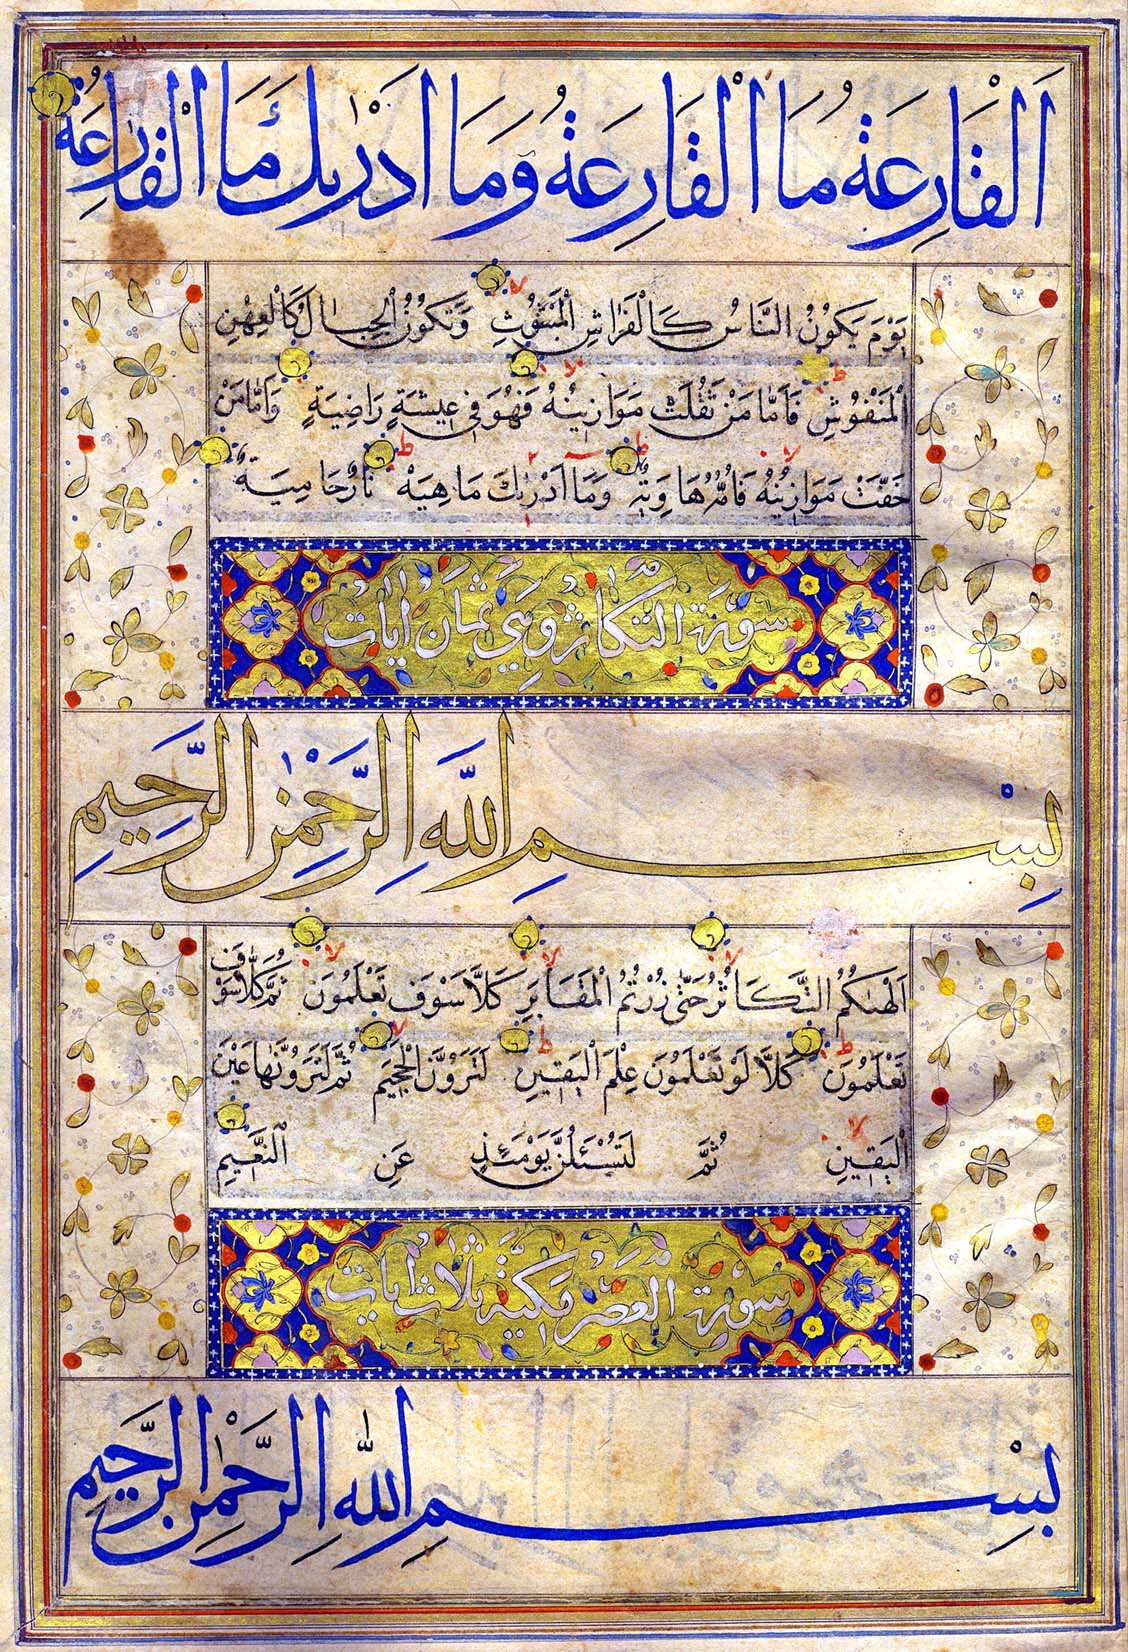 اَلْقَارِعَةُ مَا الْقَارِعَةُ وَمَا اَدْرٰيكَ مَا الْقَارِعَةُ
يَوْمَ يَكُونُ النَّاسُ كَالْفَرَاشِ الْمَبْثُوثِ وَتَكُونُ الْجِبَالُ كَالْعِهْنِ
الْمَنْفُوشِ فَاَمَّا مَنْ ثَقُلَتْ مَوَازِينُهُ فَهُوَ فِي عِيشَةٍ رَاضِيَةٍ وَاَمَّا مَنْ
خَفَّتْ مَوَازِينُهُ فَاُمُّهُ هَاوِيَةٌ وَمَا اَدْرٰيكَ مَا هِيَهْ نَارٌ حَامِيَةٌ
سورة التكاثر وهي ثمان آيات
بِسْمِ اللَّهِ الرَّحْمٰنِ الرَّحِيمِ
اَلْهٰيكُمُ التَّكَاثُرُ حَتّٰى زُرْتُمُ الْمَقَابِرَ كَلَّا سَوْفَ تَعْلَمُونَ ثُمَّ كَلَّا سَوْفَ
تَعْلَمُونَ كَلَّا لَوْ تَعْلَمُونَ عِلْمَ الْيَقِينِ لَتَرَوُنَّ الْجَحِيمَ ثُمَّ لَتَرَوُنَّهَا عَيْنَ
الْيَقِينِ ثُمَّ لَتُسْئَلُنَّ يَوْمَئِذٍ عَنِ النَّعِيمِ
سورة العصر مكية ثلاث آيات
بِسْمِ اللّٰهِ الرَّحْمٰنِ الرَّحِيمِ